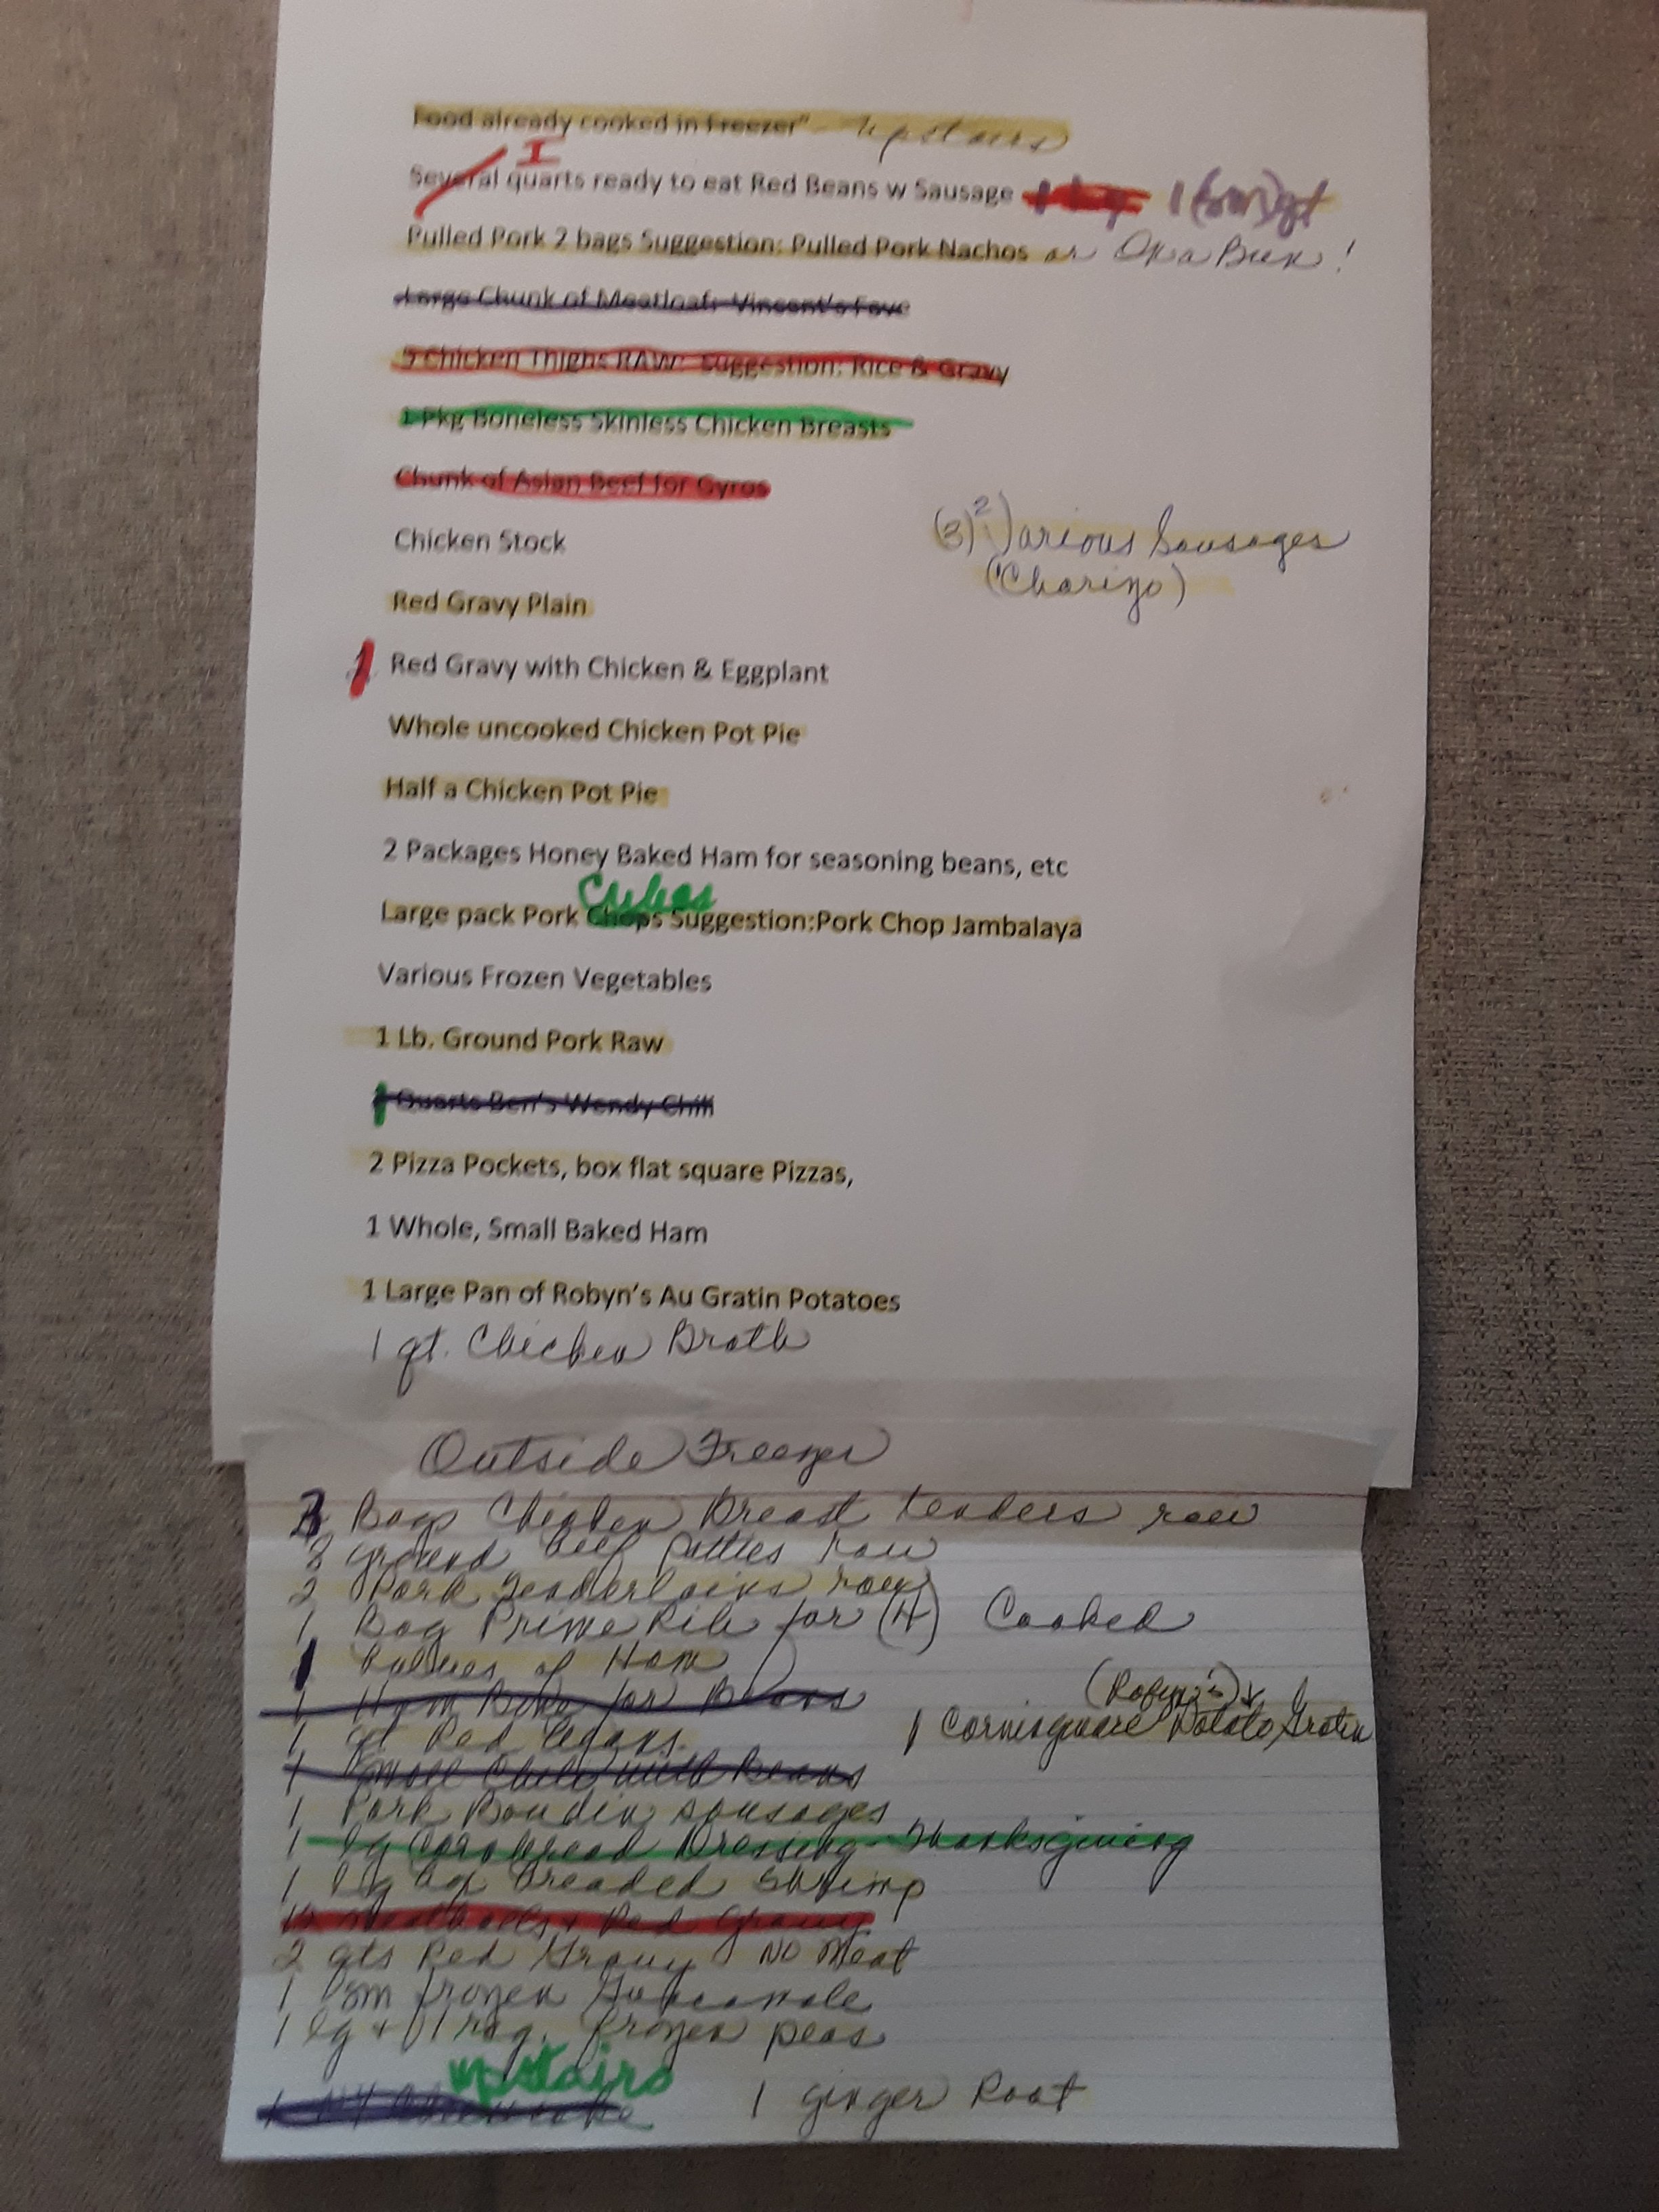 Food already cooked in Freezer" - upstairs
I
Several quarts ready to eat Red Beans w Sausage 1 (sm) qt
Pulled Pork 2 bags Suggestion: Pulled Pork Nachos or On a Bun!
Large Chunk of Meatloaf: Vincent's Fave
5 Chicken Thighs RAW: Suggestion: Rice & Gravy
1 Pkg Boneless Skinless Chicken Breasts
Chunk of Asian Beef for Gyros
Chicken Stock
(3) 2 Various Sausages
(Chorizo)
Red Gravy Plain
1 Red Gravy with Chicken & Eggplant
Whole uncooked Chicken Pot Pie
Half a Chicken Pot Pie
2 Packages Honey Baked Ham for seasoning beans, etc
Cubes
Large pack Pork Chops Suggestion:Pork Chop Jambalaya
Various Frozen Vegetables
1 Lb. Ground Pork Raw
Quarts Ben's Wendy Chili
2 Pizza Pockets, box flat square Pizzas,
1 Whole, Small Baked Ham
1 Large Pan of Robyn's Au Gratin Potatoes
1 qt. Chicken Broth
Outside Freezer
Bags Chicken Breast tenders raw
8 ground beef patties raw
2 Pork Tenderloins raw
1 Bag Prime Rib for (4) Cooked
1 of Ham
1 Ham Bone for Beans
(Robyn's)
1 qt Red beans
1 Corningware Potato Gratin
1 Small Chili with Beans
1 Pork Boudin sausages
1 lg Cornbread Dressing - Thanksgiving
1 lg bag breaded Shrimp
Meatballs + Red Gravy
2 qts Red Gravy NO Meat
1 sm frozen Guacamole
1 lg + 1 reg. frozen peas
upstairs
1 NY Cheesecake
1 ginger Root